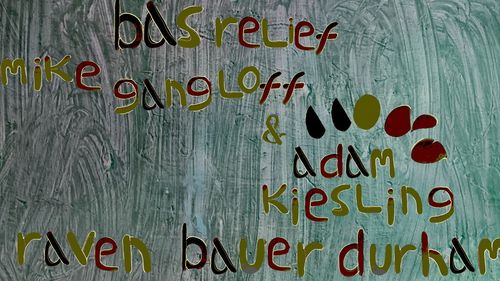 bas relief
mike gangloff
& adam
kiesling
raven bauer durham